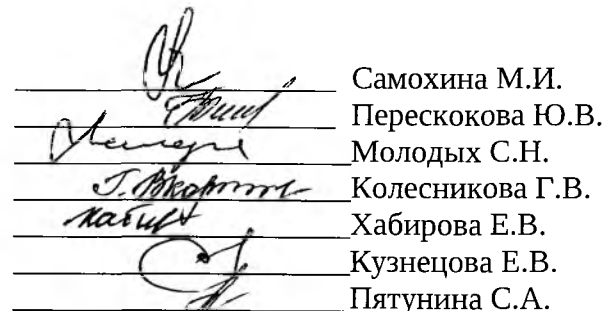 Самохина М.И.
Перескокова Ю.В.
Молодых С.Н.
Колесникова Г.В.
Хабирова Е.В.
Кузнецова Е.В.
Пятунина С.А.